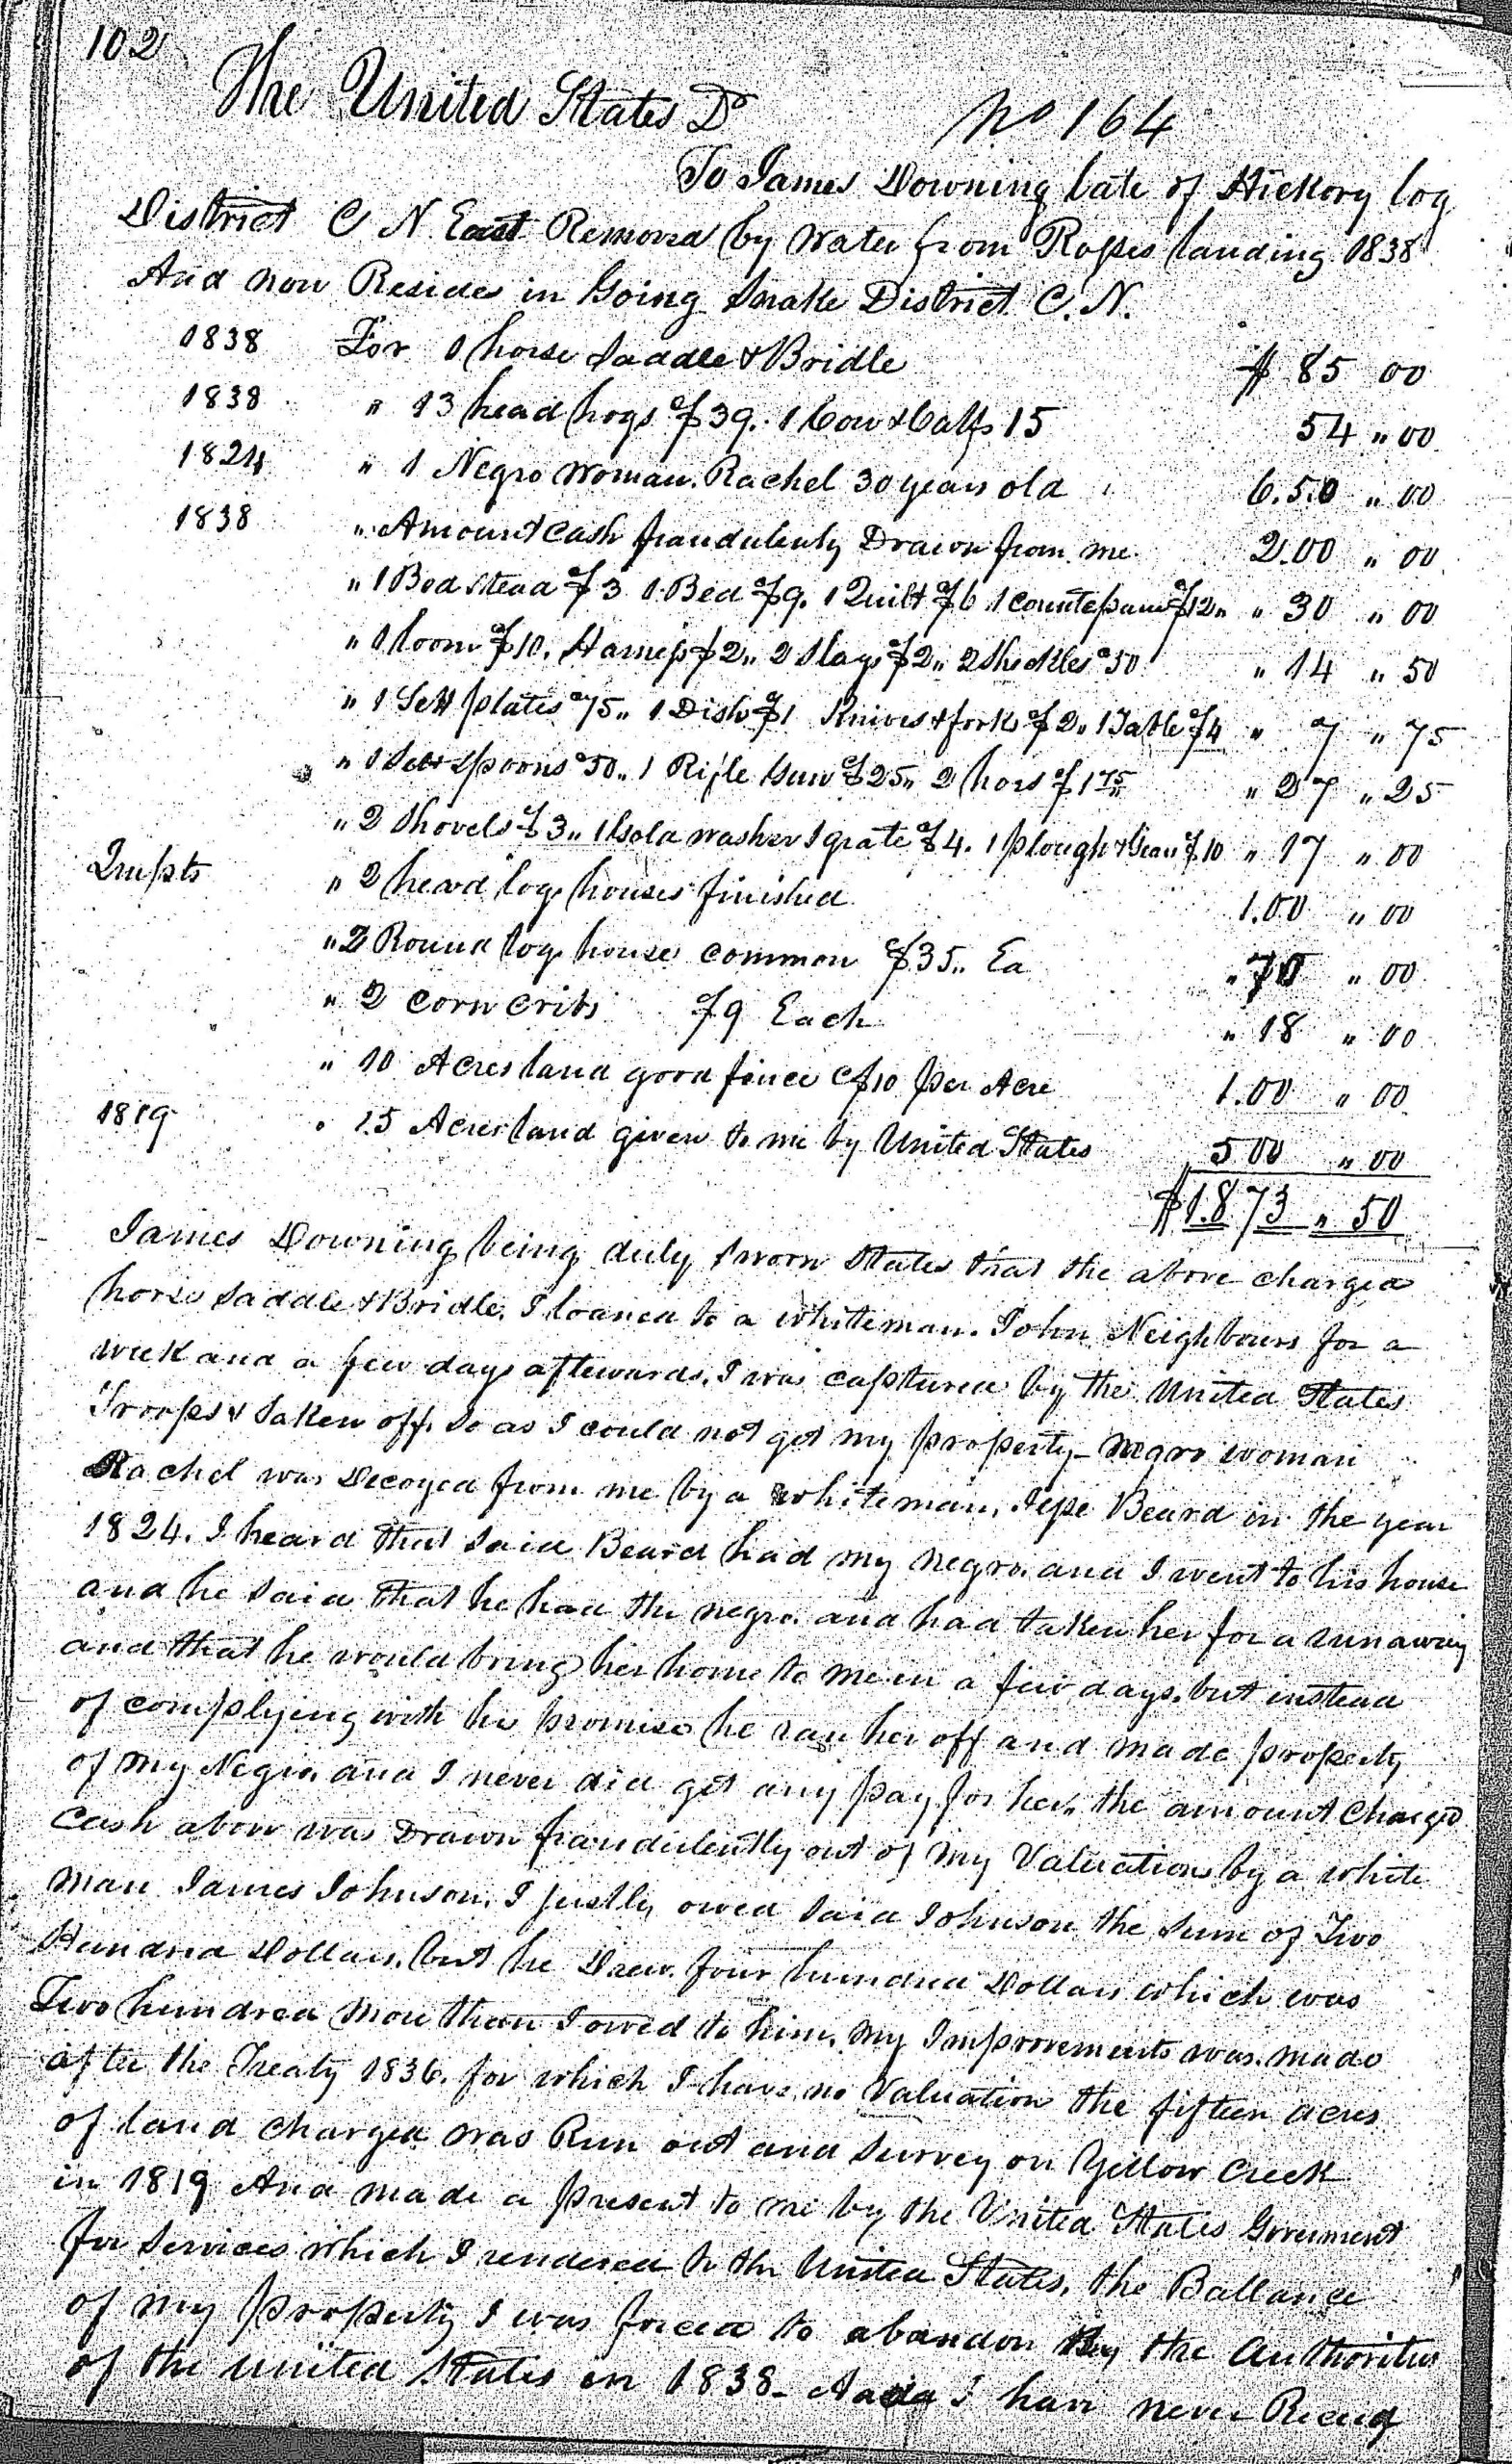 102
The United States Dr
No 164
To James Downing late of Hickory log
District C N East Removed by water from Rosses landing 1838
And now Resides in Going Snake District C.N.
1838 For 1 horse saddle & Bridle $ 85 00
1838 " 13 head hogs $39. 1 Cow & Calf 15 54 " 00
1824 " 1 Negro woman. Rachel 30 years old 6.50 " 00
1838 " Amount Cash fraudulently Drawn from me. 2.00 " 00
" 1 Bed stead $3 1 Bed $9. 1 Quilt $6 1 counterpane $12 " " 30 " 00
" 1 loom $10. Harness $2 " 2 Slays $2 " 2 Sheckles 50 " 14 " 50
" 1 Sett plates 75 " 1 Dish $1 Knives & forks $2 " 1 Table $4 " 7 " 75
" 1 Sett spoons 50 " 1 Rifle Gun $25 " 2 hoes $1 75 " 27 " 25
" 2 Shovels $3 " 1 Gold washer & grate $4. 1 plough & Gear $10 " 17 " 00
Impts " 2 hewd log houses finished 1.00 " 00
" 2 Round log houses common $35 " Ea " 70 " 00
" 2 corn cribs $9 Each " 18 " 00
" 10 Acres land good fence $10 per Acre 1.00 " 00
1819 " 15 Acres land given to me by United States 500 " 00
$1.873 " 50
James Downing being duly sworn States that the above charged
horse saddle & Bridle, I loaned to a whiteman. John Neighbours for a
week and a few days aftewards, I was captured by the United States
Troops & taken off, so as I could not get my property - negro woman
Rachel was Decoyed from me by a whiteman, Jesse Beard in the year
1824. I heard that said Beard had my negro. and I went to his house
and he said that he had the negro. and had taken her for a runaway
and that he would bring her home to me in a few days. but instead
of complying with his promise he ran her off and made property
of my Negro, and I never did get any pay for her. the amount charged
Cash above was Drawn fraudulently out of my Valuation by a white
man James Johnson. I justly owed said Johnson the sum of Two
Hundred Dollars. but he Drew four hundred Dollars which was
Two hundred more than I owed to him, my Improvements was made
after the Treaty 1836. for which I have no Valuation the fifteen acres
of land charged was Run out and survey on Yellow Creek
in 1819 And made a present to me by the United States Goverment
for services which I rendered to the United States, the Ballance
of my property I was forced to abandon By the authorities
of the united States in 1838 - And I have never Recevd